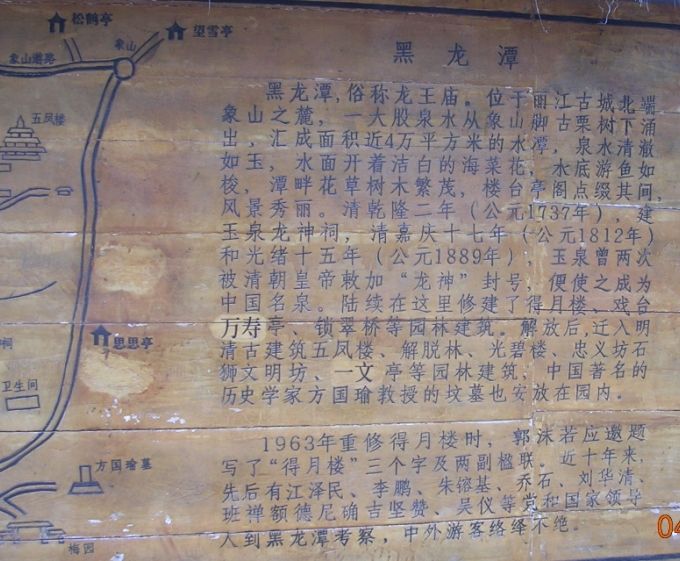 松鹤亭
望雪亭
象山
象山道路
五凤楼
思思亭
祠
卫生间
方国瑜墓
梅园
黑龙潭
黑龙潭,俗称龙王庙。位于丽江古城北端
象山之麓,一大股泉水从象山脚古栗树下涌
出,汇成面积近4万平方米的水潭,泉水清澈
如玉,水面开着洁白的海菜花,水底游鱼如
梭,潭畔花草树木繁茂,楼台亭阁点缀其间,
风景秀丽。清乾隆二年(公元1737年),建
玉泉龙神祠,清嘉庆十七年(公元1812年)
和光绪十五年(公元1889年),玉泉曾两次
被清朝皇帝敕加“龙神”封号,便使之成为
中国名泉。陆续在这里修建了得月楼、戏台
万寿亭、锁翠桥等园林建筑。解放后,迁入明
清古建筑五凤楼、解脱林、光碧楼、忠义坊石
狮文明坊、一文亭等园林建筑,中国著名的
历史学家方国瑜教授的坟墓也安放在园内。
1963年重修得月楼时,郭沫若应邀题
写了“得月楼”三个字及两副楹联。近十年来,
先后有江泽民、李鹏、朱镕基、乔石、刘华清、
班禅额德尼确吉坚赞、吴仪等党和国家领导
人到黑龙潭考察,中外游客络绎不绝。
04